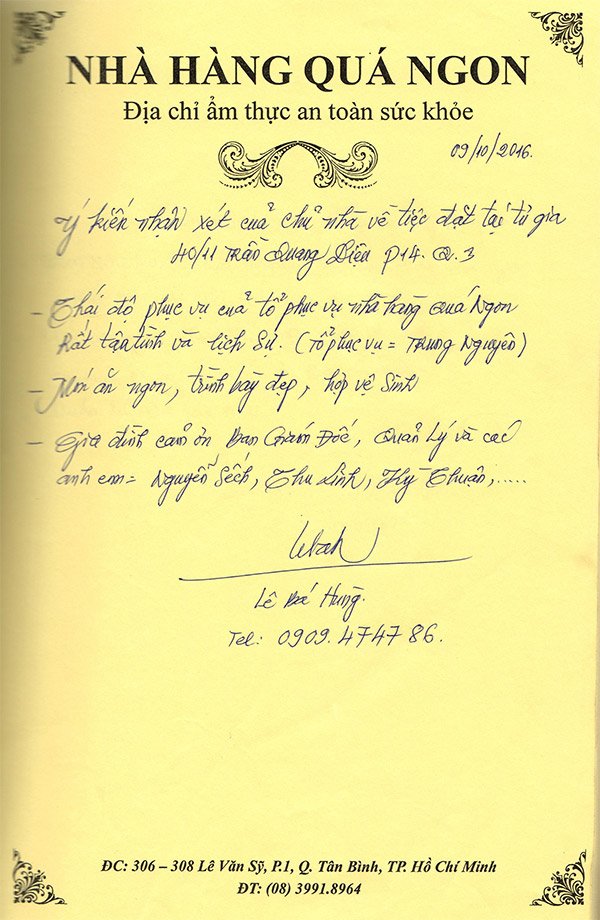 NHÀ HÀNG QUÁ NGON
Địa chỉ ẩm thực an toàn sức khỏe
09/10/2016.
Ý kiến nhận xét của chủ nhà về tiệc đặt tại tư gia
40/11 Trần Quang Diệu P14. Q.3
- Thái độ phục vụ của tổ phục vụ nhà hàng Quá Ngon
Rất tận tình và lịch sự. (Tổ phục vụ = Trung Nguyên)
- Món ăn ngon, trình bày đẹp, hợp vệ sinh
- Gia đình cảm ơn Ban Giám Đốc, Quản Lý và các
anh em = Nguyễn Sếch, Thu Linh, Kỳ Thuận, .....
Lê Bá Hùng.
Tel: 0909.474786.
ĐC: 306 – 308 Lê Văn Sỹ, P.1, Q. Tân Bình, TP. Hồ Chí Minh
ĐT: (08) 3991.8964